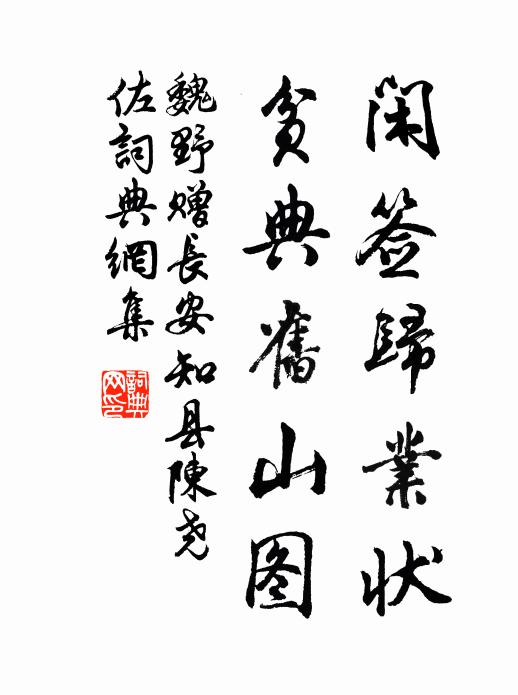 闲签歸業状
貧典舊山图
魏野赠長安知县陳尧
佐詞典網集
詞典网印